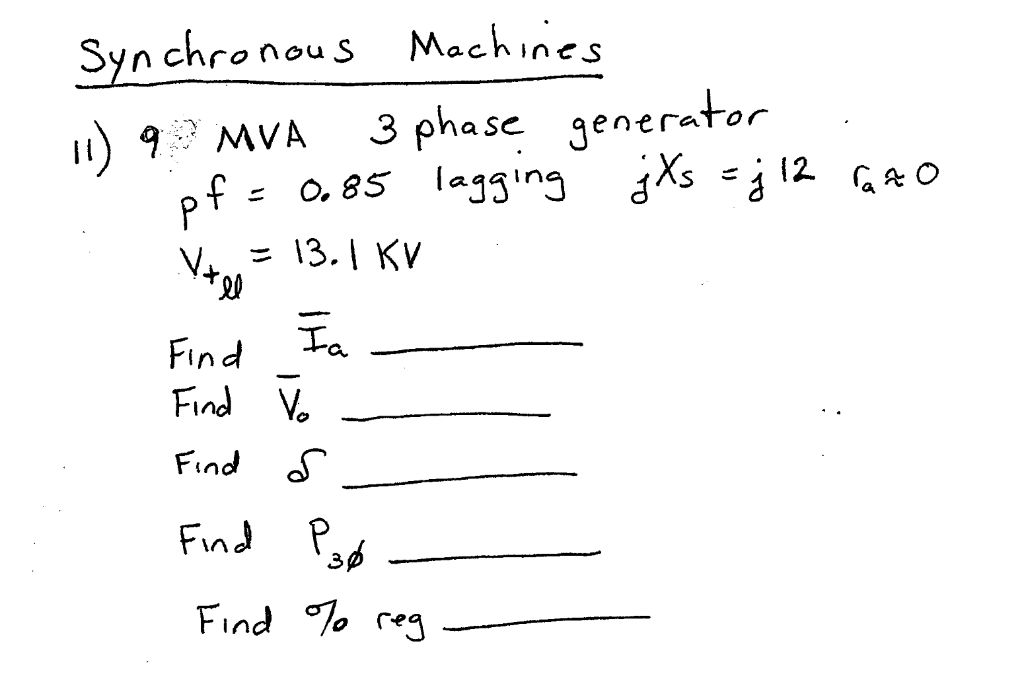 Synchronous Machines
11) 9 MVA 3 phase generator
pf = 0.85 lagging jXs = j12 ra ≈ 0
Vtll = 13.1 KV
Find Ia
Find Vo
Find δ
Find P3ø
Find % reg